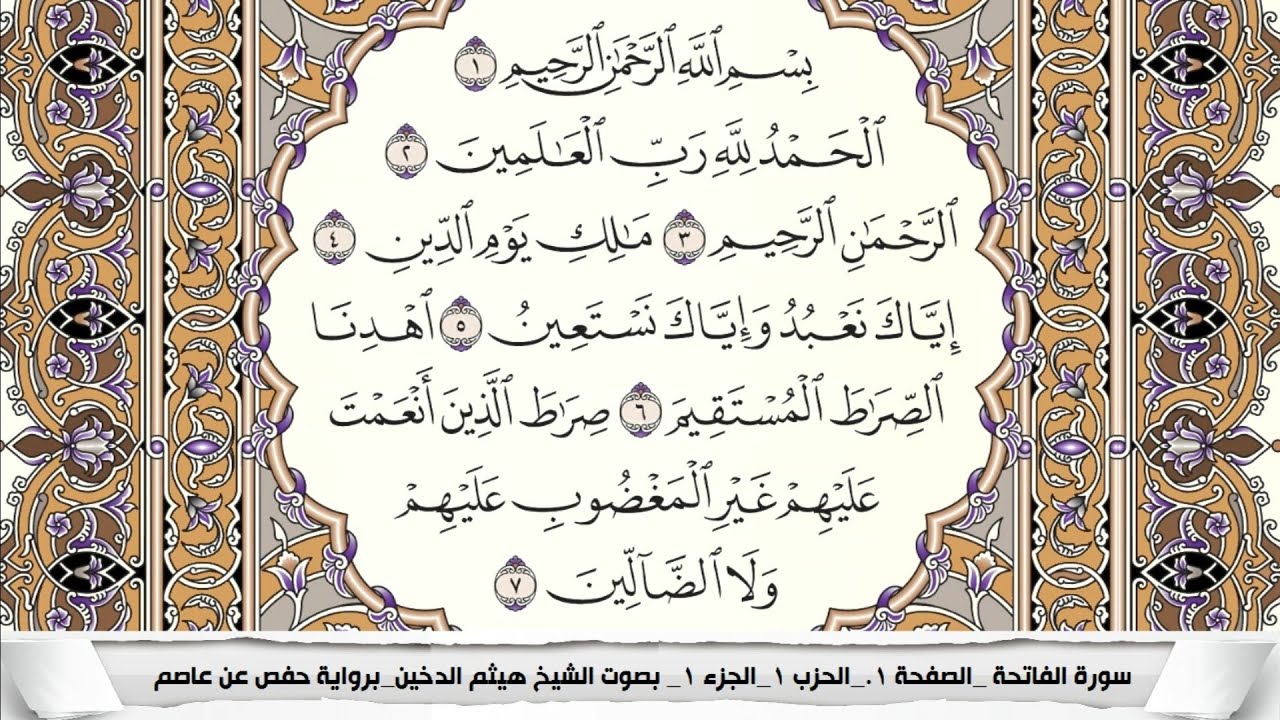 بِسْمِ ٱللَّهِ ٱلرَّحْمَٰنِ ٱلرَّحِيمِ ١
ٱلْحَمْدُ لِلَّهِ رَبِّ ٱلْعَٰلَمِينَ ٢
ٱلرَّحْمَٰنِ ٱلرَّحِيمِ ٣ مَٰلِكِ يَوْمِ ٱلدِّينِ ٤
إِيَّاكَ نَعْبُدُ وَإِيَّاكَ نَسْتَعِينُ ٥ ٱهْدِنَا
ٱلصِّرَٰطَ ٱلْمُسْتَقِيمَ ٦ صِرَٰطَ ٱلَّذِينَ أَنْعَمْتَ
عَلَيْهِمْ غَيْرِ ٱلْمَغْضُوبِ عَلَيْهِمْ
وَلَا ٱلضَّآلِّينَ ٧
سورة الفاتحة _الصفحة ١._الحزب ١_الجزء ١_ بصوت الشيخ هيثم الدخين_برواية حفص عن عاصم